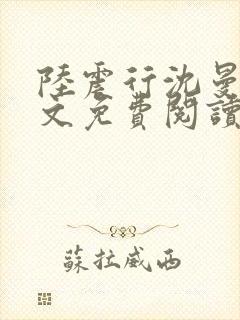 陸震行沈曼
文免費閱讀
蘇拉威西